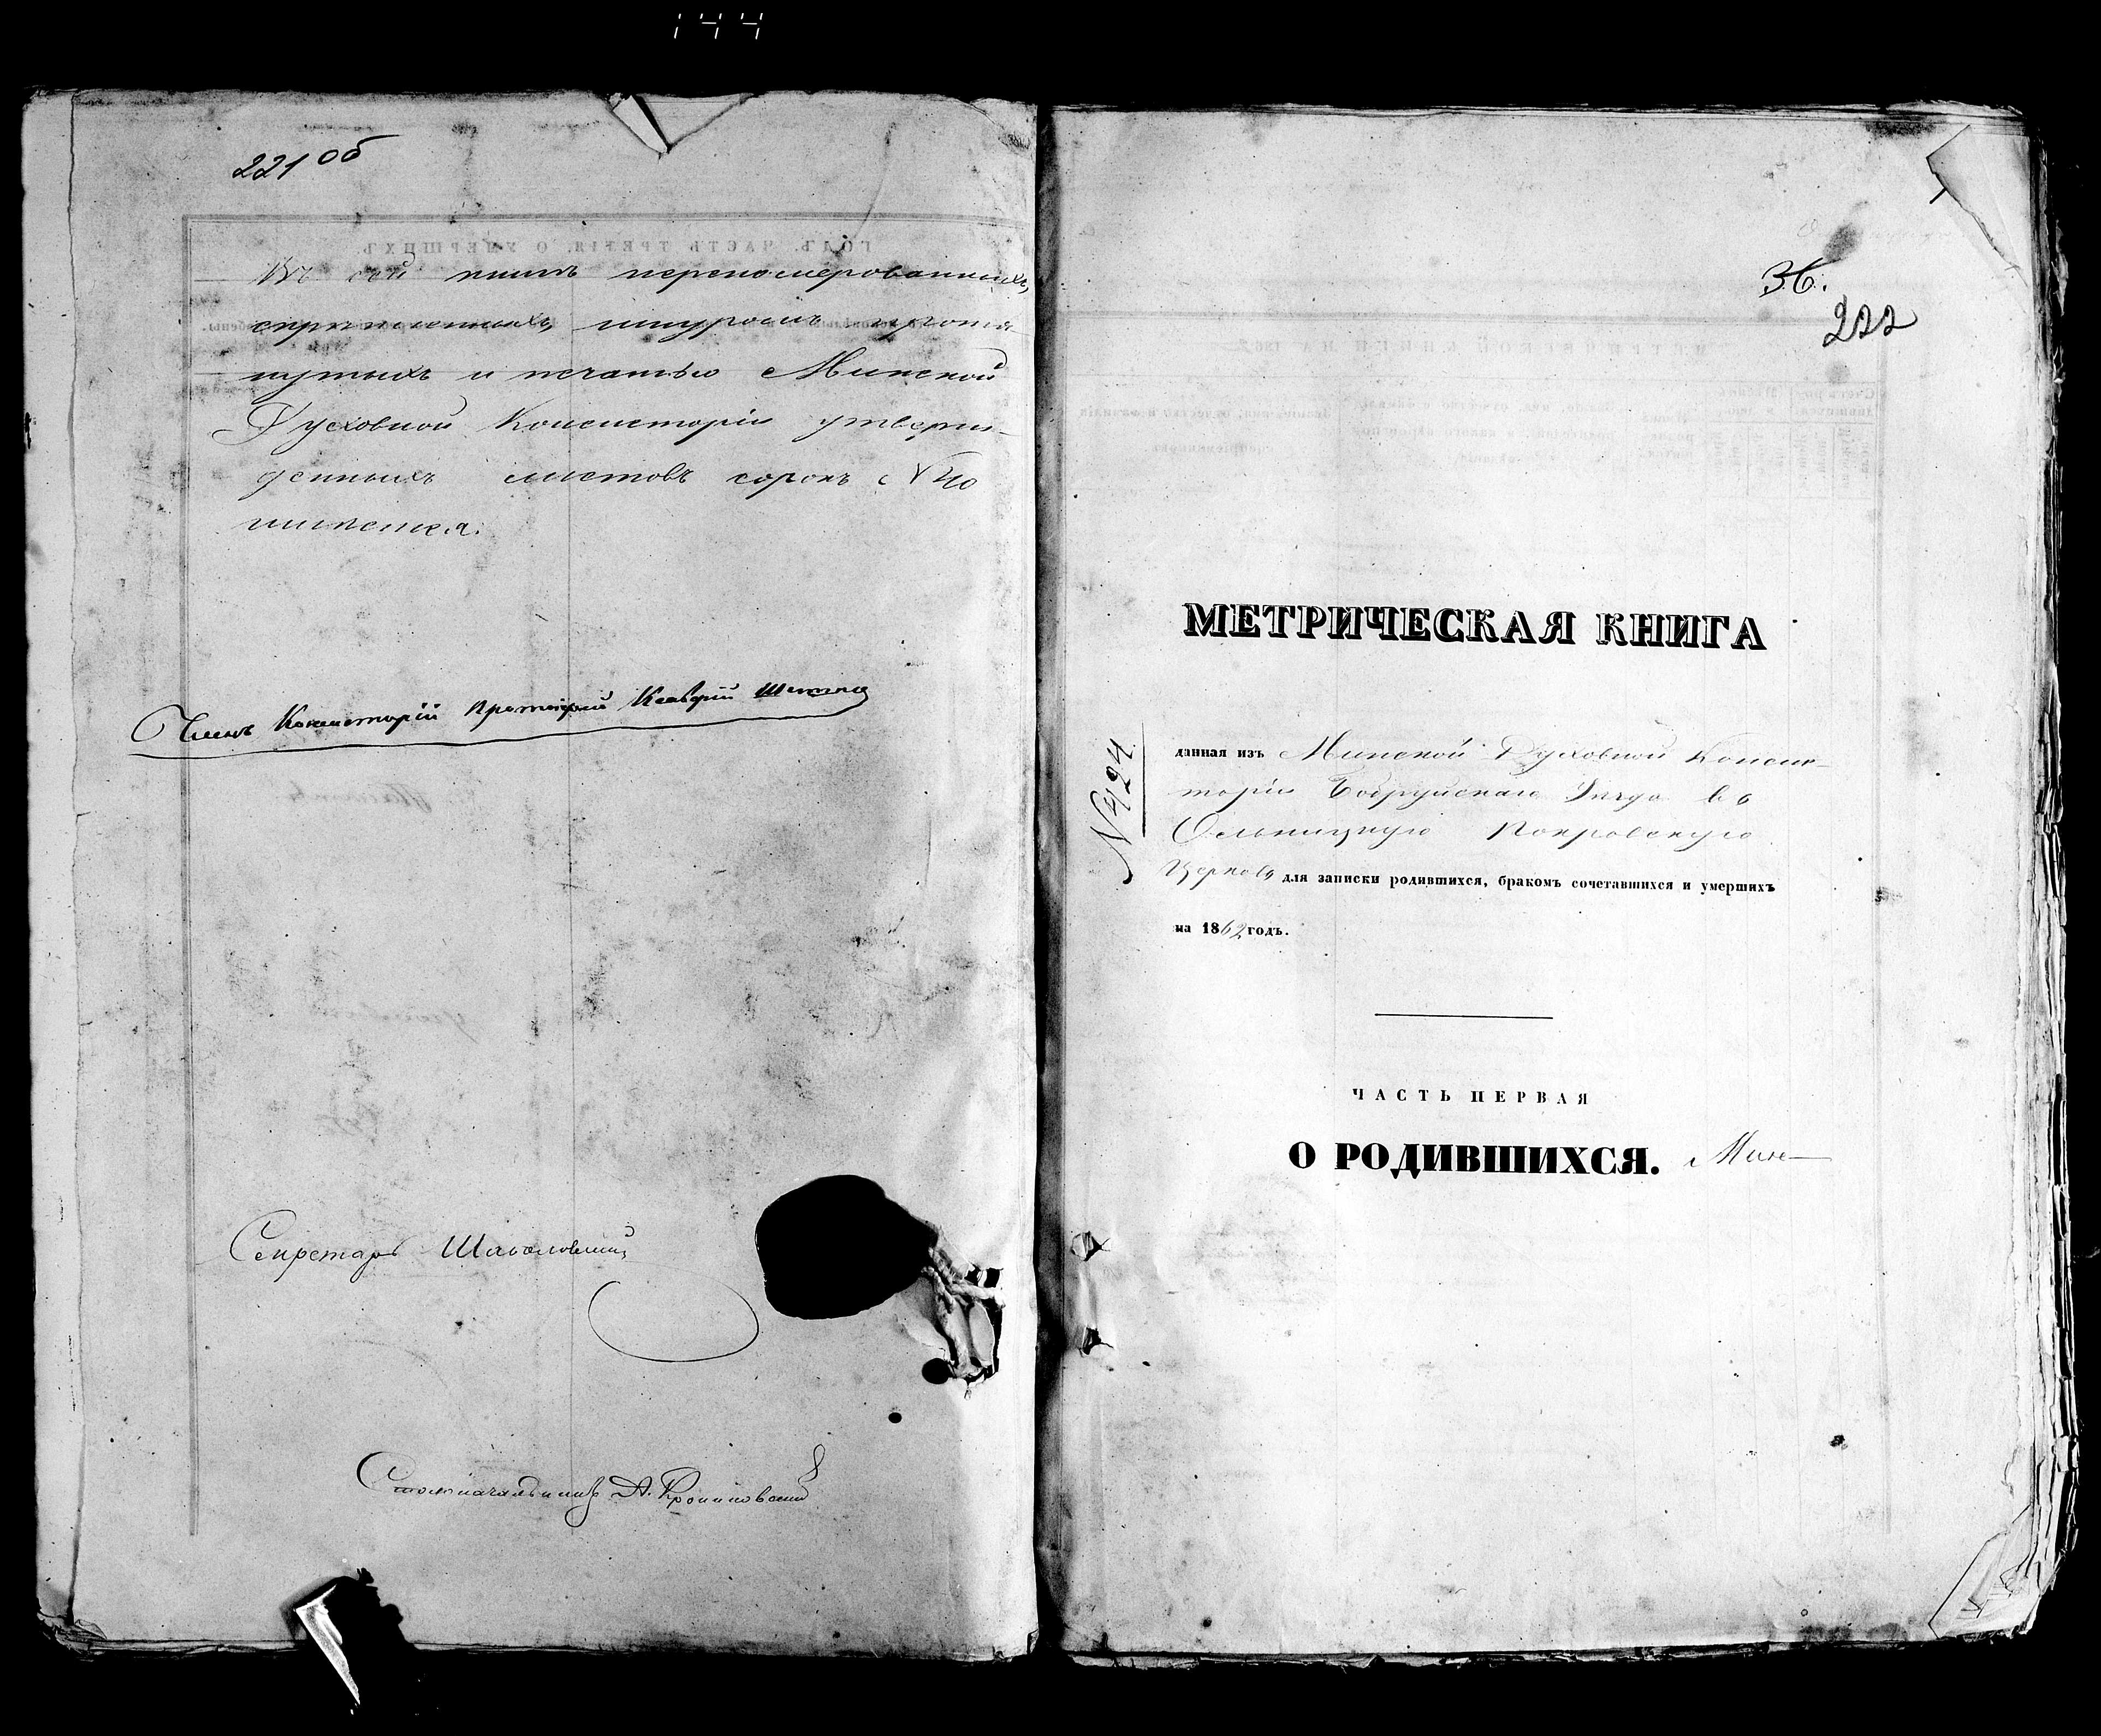 144
221 об
Въ сей книгѣ перенумерованныхъ,
скрѣпленныхъ, шнуромъ протя-
нутыхъ и печатью Минской
Духовной Консисторіи утверж-
денныхъ листовъ сорокъ № 40
имѣется.
Членъ Консисторіи Протоіерей
Секретарь
Столоначальникъ
36.
222
МЕТРИЧЕСКАЯ КНИГА
№ 424
данная изъ Минской Духовной Консис-
торіи Бобруйскаго Уѣзда въ
Ольницкую Покровскую
Церковь для записки родившихся, бракомъ сочетавшихся и умершихъ
на 1862 годъ.
ЧАСТЬ ПЕРВАЯ
О РОДИВШИХСЯ.